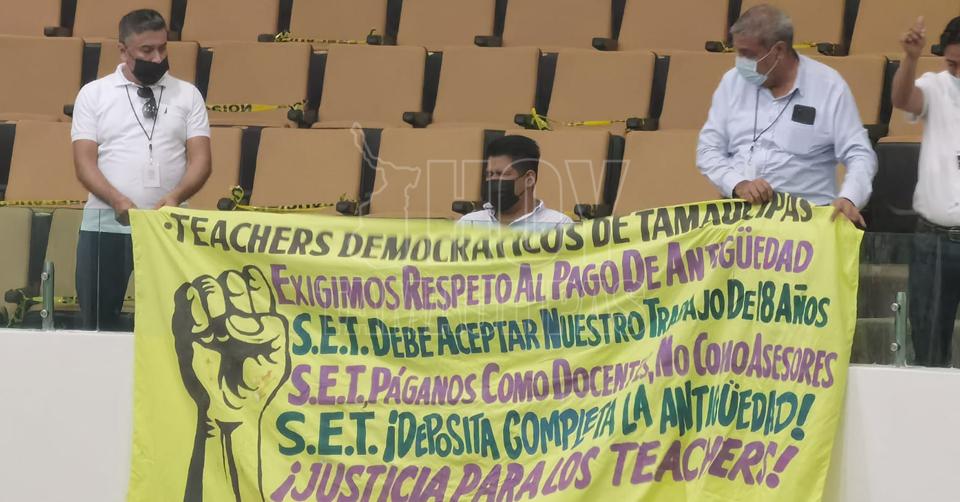 ·TEACHERS DEMOCRÁTICOS DE TAMAULIPAS
EXIGIMOS RESPETO AL PAGO DE ANTIGÜEDAD
S.E.T. DEBE ACEPTAR NUESTRO TRABAJO DE 18 AÑOS
S.E.T, PÁGANOS COMO DOCENTES, NO COMO ASESORES
S.E.T. ¡DEPOSITA COMPLETA LA ANTIGÜEDAD!
¡JUSTICIA PARA LOS TEACHERS!
HOY